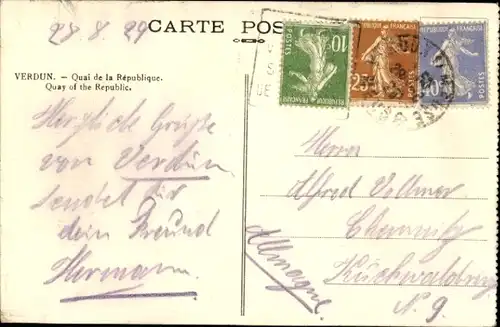 28.8.29
CARTE POS
VERDUN. – Quai de la République.
Quay of the Republic.
Herzliche Grüße
von Verdun
sendet dir
dein Freund
Hermann.
10
POSTES
25
POSTES
40
POSTES
Herrn
Alfred Vollmer
Chemnitz
Küchwaldring
N. 9.
Allemagne